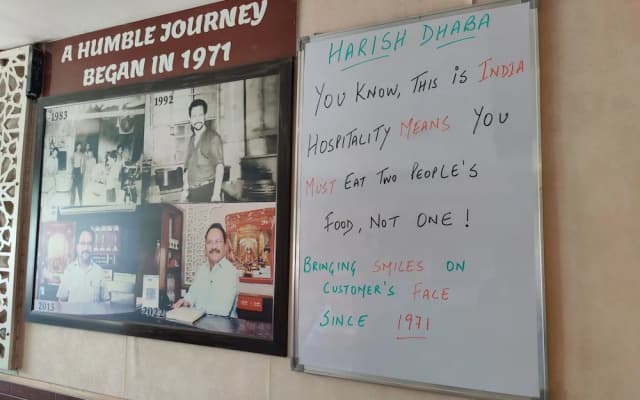 A HUMBLE JOURNEY
BEGAN IN 1971
1983
1992
2015
2022
HARISH DHABA
YOU KNOW, THIS IS INDIA
HOSPITALITY MEANS YOU
MUST EAT TWO PEOPLE'S
FOOD, NOT ONE!
BRINGING SMILES ON
CUSTOMER'S FACE
SINCE 1971